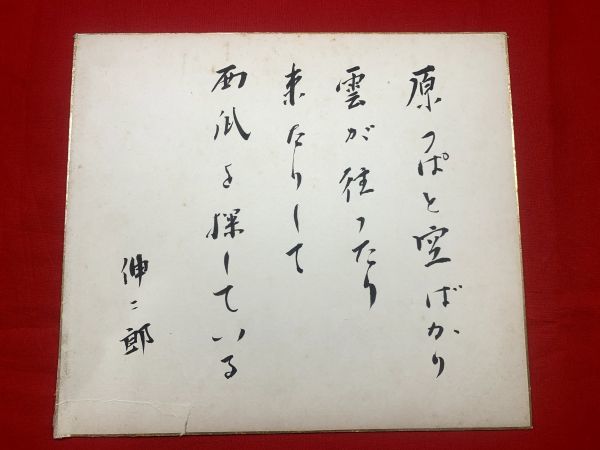 原っぱと空ばかり
雲が往ったり
来たりして
西瓜を探している
伸二郎